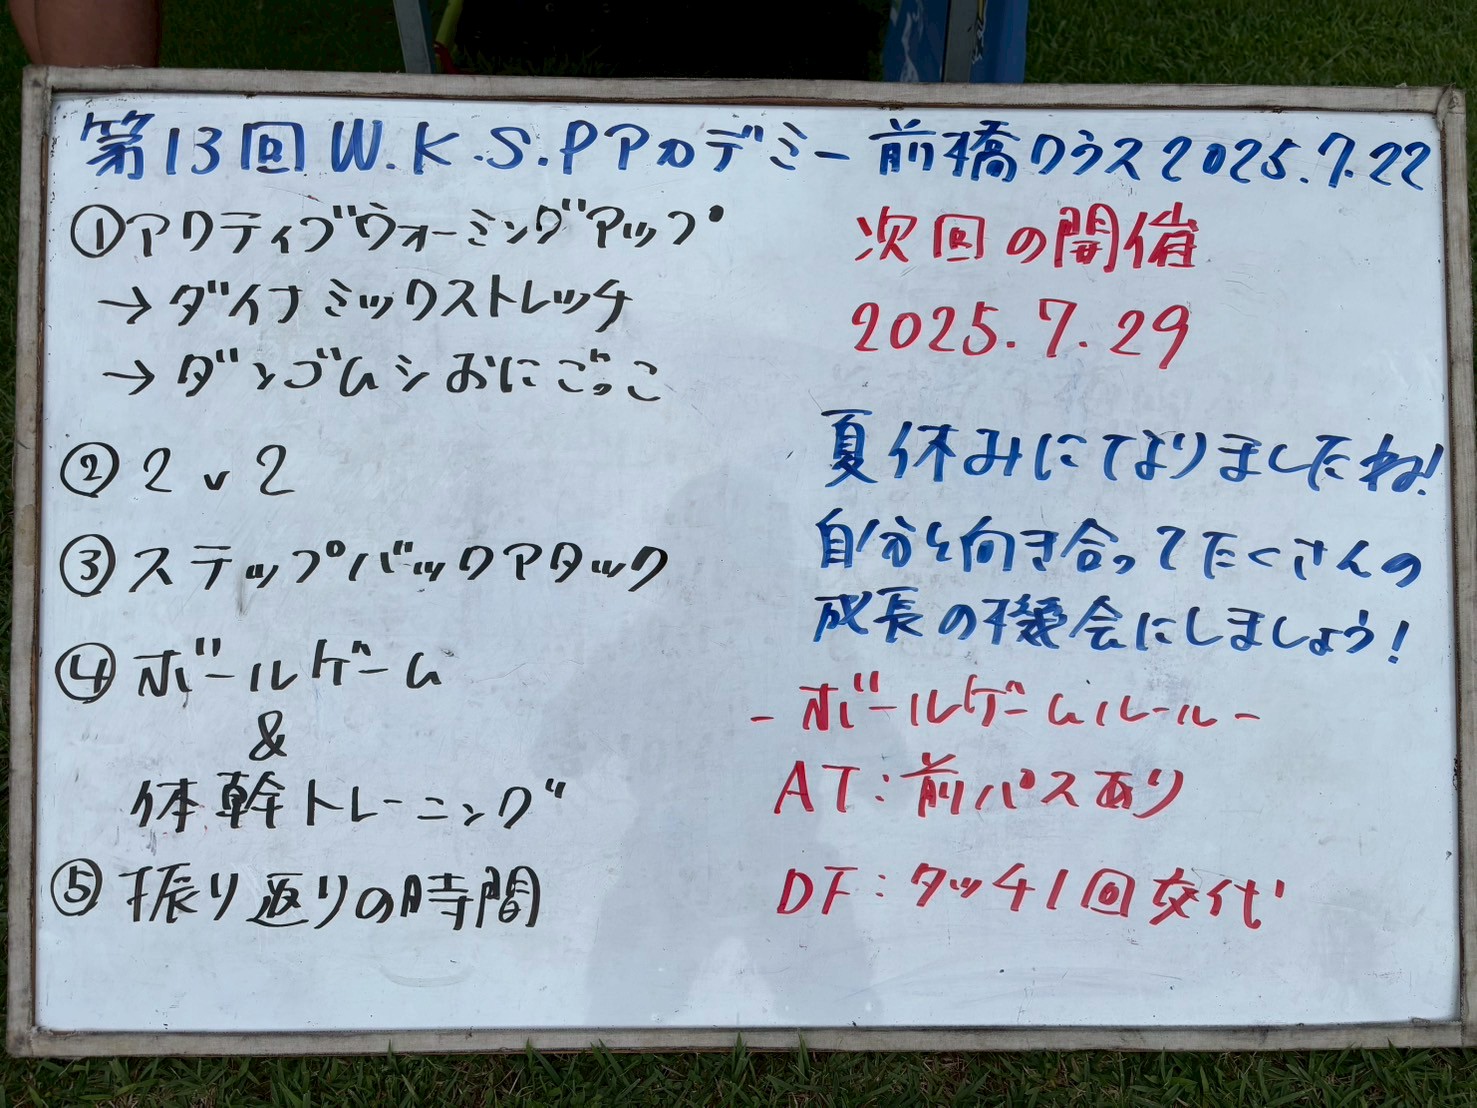 第13回 W.K.S.Pアカデミー 前橋クラス 2025.7.22
①アクティブウォーミングアップ
→ダイナミックストレッチ
→ダンゴムシおにごっこ
② 2 v 2
③ステップバックアタック
④ボールゲーム
&
体幹トレーニング
⑤振り返りの時間
次回の開催
2025.7.29
夏休みになりましたね!
自分と向き合ってたくさんの
成長の機会にしましょう!
-ボールゲームルール-
AT:前パスあり
DF:タッチ1回交代